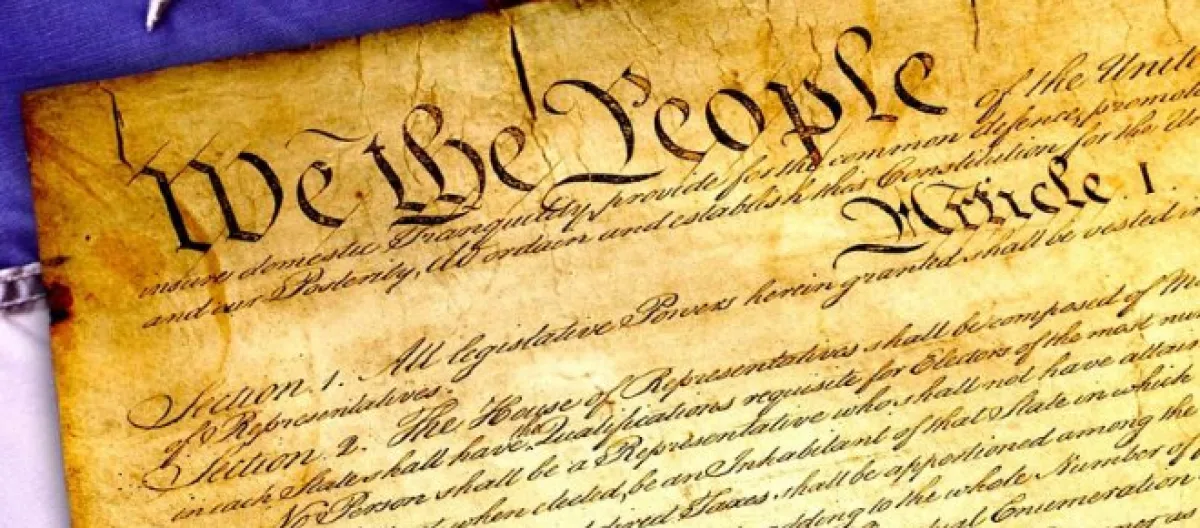 We the People of the Unite
insure domestic Tranquility, provide for the common defence, promote
and our Posterity, do ordain and establish this Constitution for the Un
Article I.
Section. 1. All legislative Powers herein granted shall be vested
of Representatives.
Section. 2. The House of Representatives shall be composed of Me
in each State shall have Qualifications requisite for Electors of the most nu
No Person shall be a Representative who shall not have attain
when elected, be an Inhabitant of that State in which
direct Taxes shall be apportioned among the
adding to the whole Number of
Enumeration